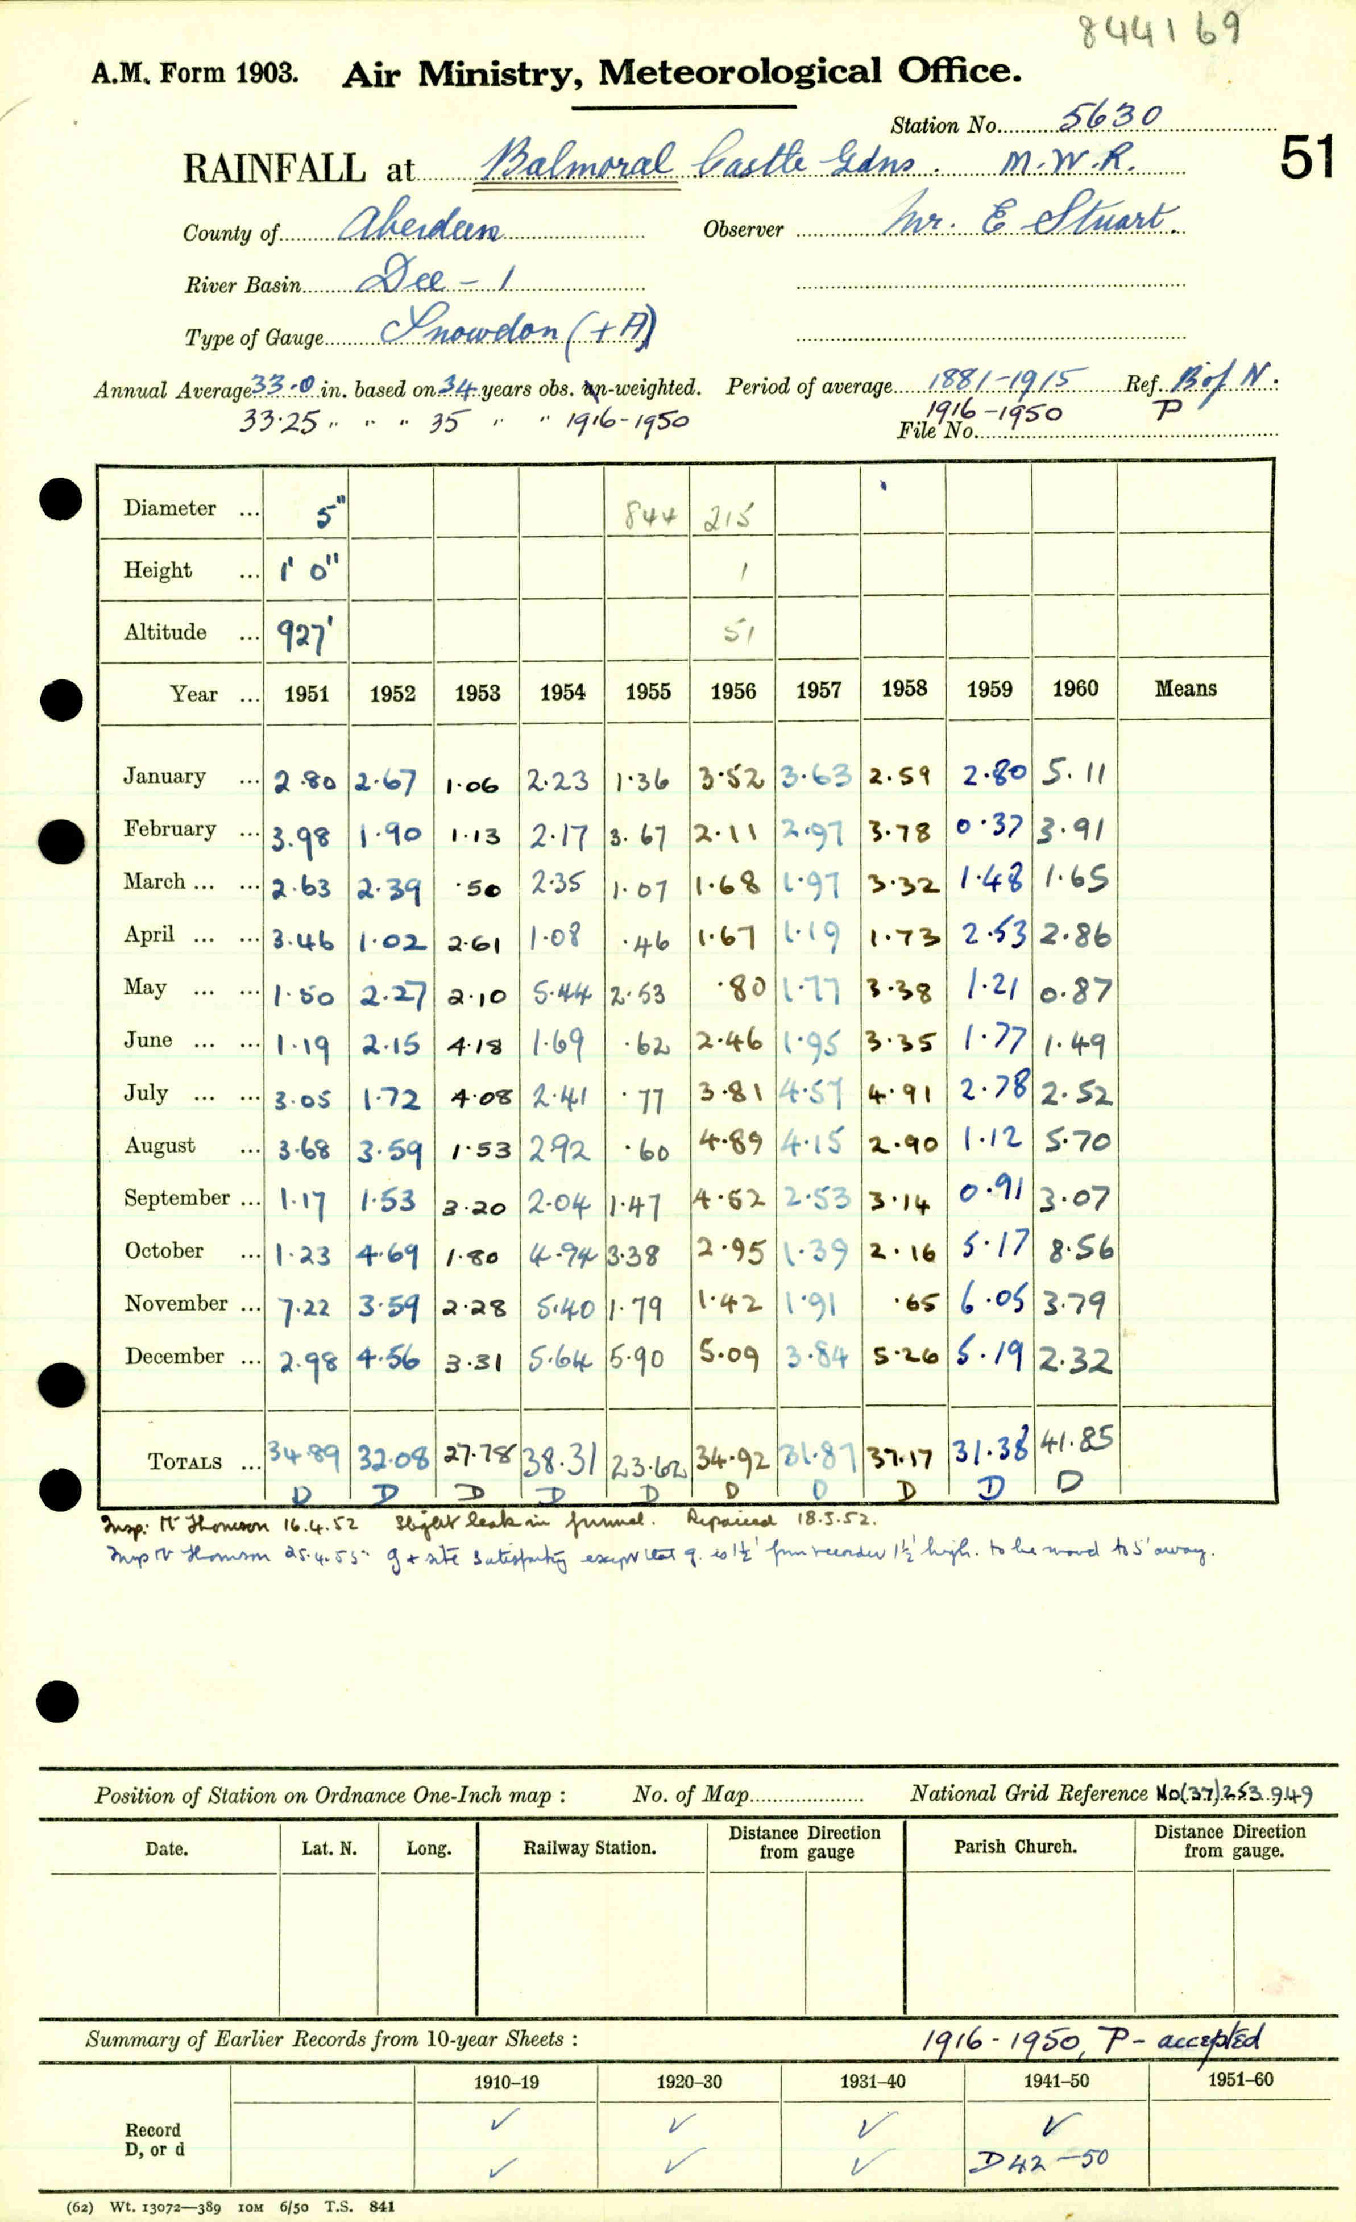 844169
A.M. Form 1903. Air Ministry, Meteorological Office.
Station No. 5630
RAINFALL at Balmoral Castle Gdns. M.W.R. 51
County of Aberdeen Observer Mr. E Stuart.
River Basin Dee - 1
Type of Gauge Snowdon (+A)
Annual Average 33.0 in. based on 34 years obs. un-weighted. Period of average 1881-1915 Ref. B of N.
33.25 " " " 35 " " 1916-1950 1916-1950 P
File No.
Diameter ... 5" 844 215
Height ... 1' 0" 1
Altitude ... 927' 51
Year ... 1951 1952 1953 1954 1955 1956 1957 1958 1959 1960 Means
January ... 2.80 2.67 1.06 2.23 1.36 3.52 3.63 2.59 2.80 5.11
February ... 3.98 1.90 1.13 2.17 3.67 2.11 2.97 3.78 0.37 3.91
March ... ... 2.63 2.39 .50 2.35 1.07 1.68 1.97 3.32 1.48 1.65
April ... ... 3.46 1.02 2.61 1.08 .46 1.67 1.19 1.73 2.53 2.86
May ... ... 1.50 2.27 2.10 5.44 2.53 .80 1.77 3.38 1.21 0.87
June ... ... 1.19 2.15 4.18 1.69 .62 2.46 1.95 3.35 1.77 1.49
July ... ... 3.05 1.72 4.08 2.41 .77 3.81 4.57 4.91 2.78 2.52
August ... 3.68 3.59 1.53 2.92 .60 4.89 4.15 2.90 1.12 5.70
September ... 1.17 1.53 3.20 2.04 1.47 4.52 2.53 3.14 0.91 3.07
October ... 1.23 4.69 1.80 4.94 3.38 2.95 1.39 2.16 5.17 8.56
November ... 7.22 3.59 2.28 5.40 1.79 1.42 1.91 .65 6.05 3.79
December ... 2.98 4.56 3.31 5.64 5.90 5.09 3.84 5.26 5.19 2.32
TOTALS ... 34.89 32.08 27.78 38.31 23.62 34.92 31.87 37.17 31.38 41.85
D D D D D D D D D D
Insp: Mr Thomson 16.4.52 Slight leak in funnel. Repaired 18.5.52.
Insp Mr Thomson 25.4.55 g + site satisfactory except that g. is 1½' from recorder 1½' high. to be moved to 5' away.
Position of Station on Ordnance One-Inch map : No. of Map National Grid Reference NO(37)253.949
Date. Lat. N. Long. Railway Station. Distance from gauge Direction Parish Church. Distance from gauge. Direction
Summary of Earlier Records from 10-year Sheets : 1916-1950, P - accepted
1910–19 1920–30 1931–40 1941–50 1951–60
Record ✓ ✓ ✓ ✓
D, or d ✓ ✓ ✓ D 42-50
(62) Wt. 13072—389 10M 6/50 T.S. 841